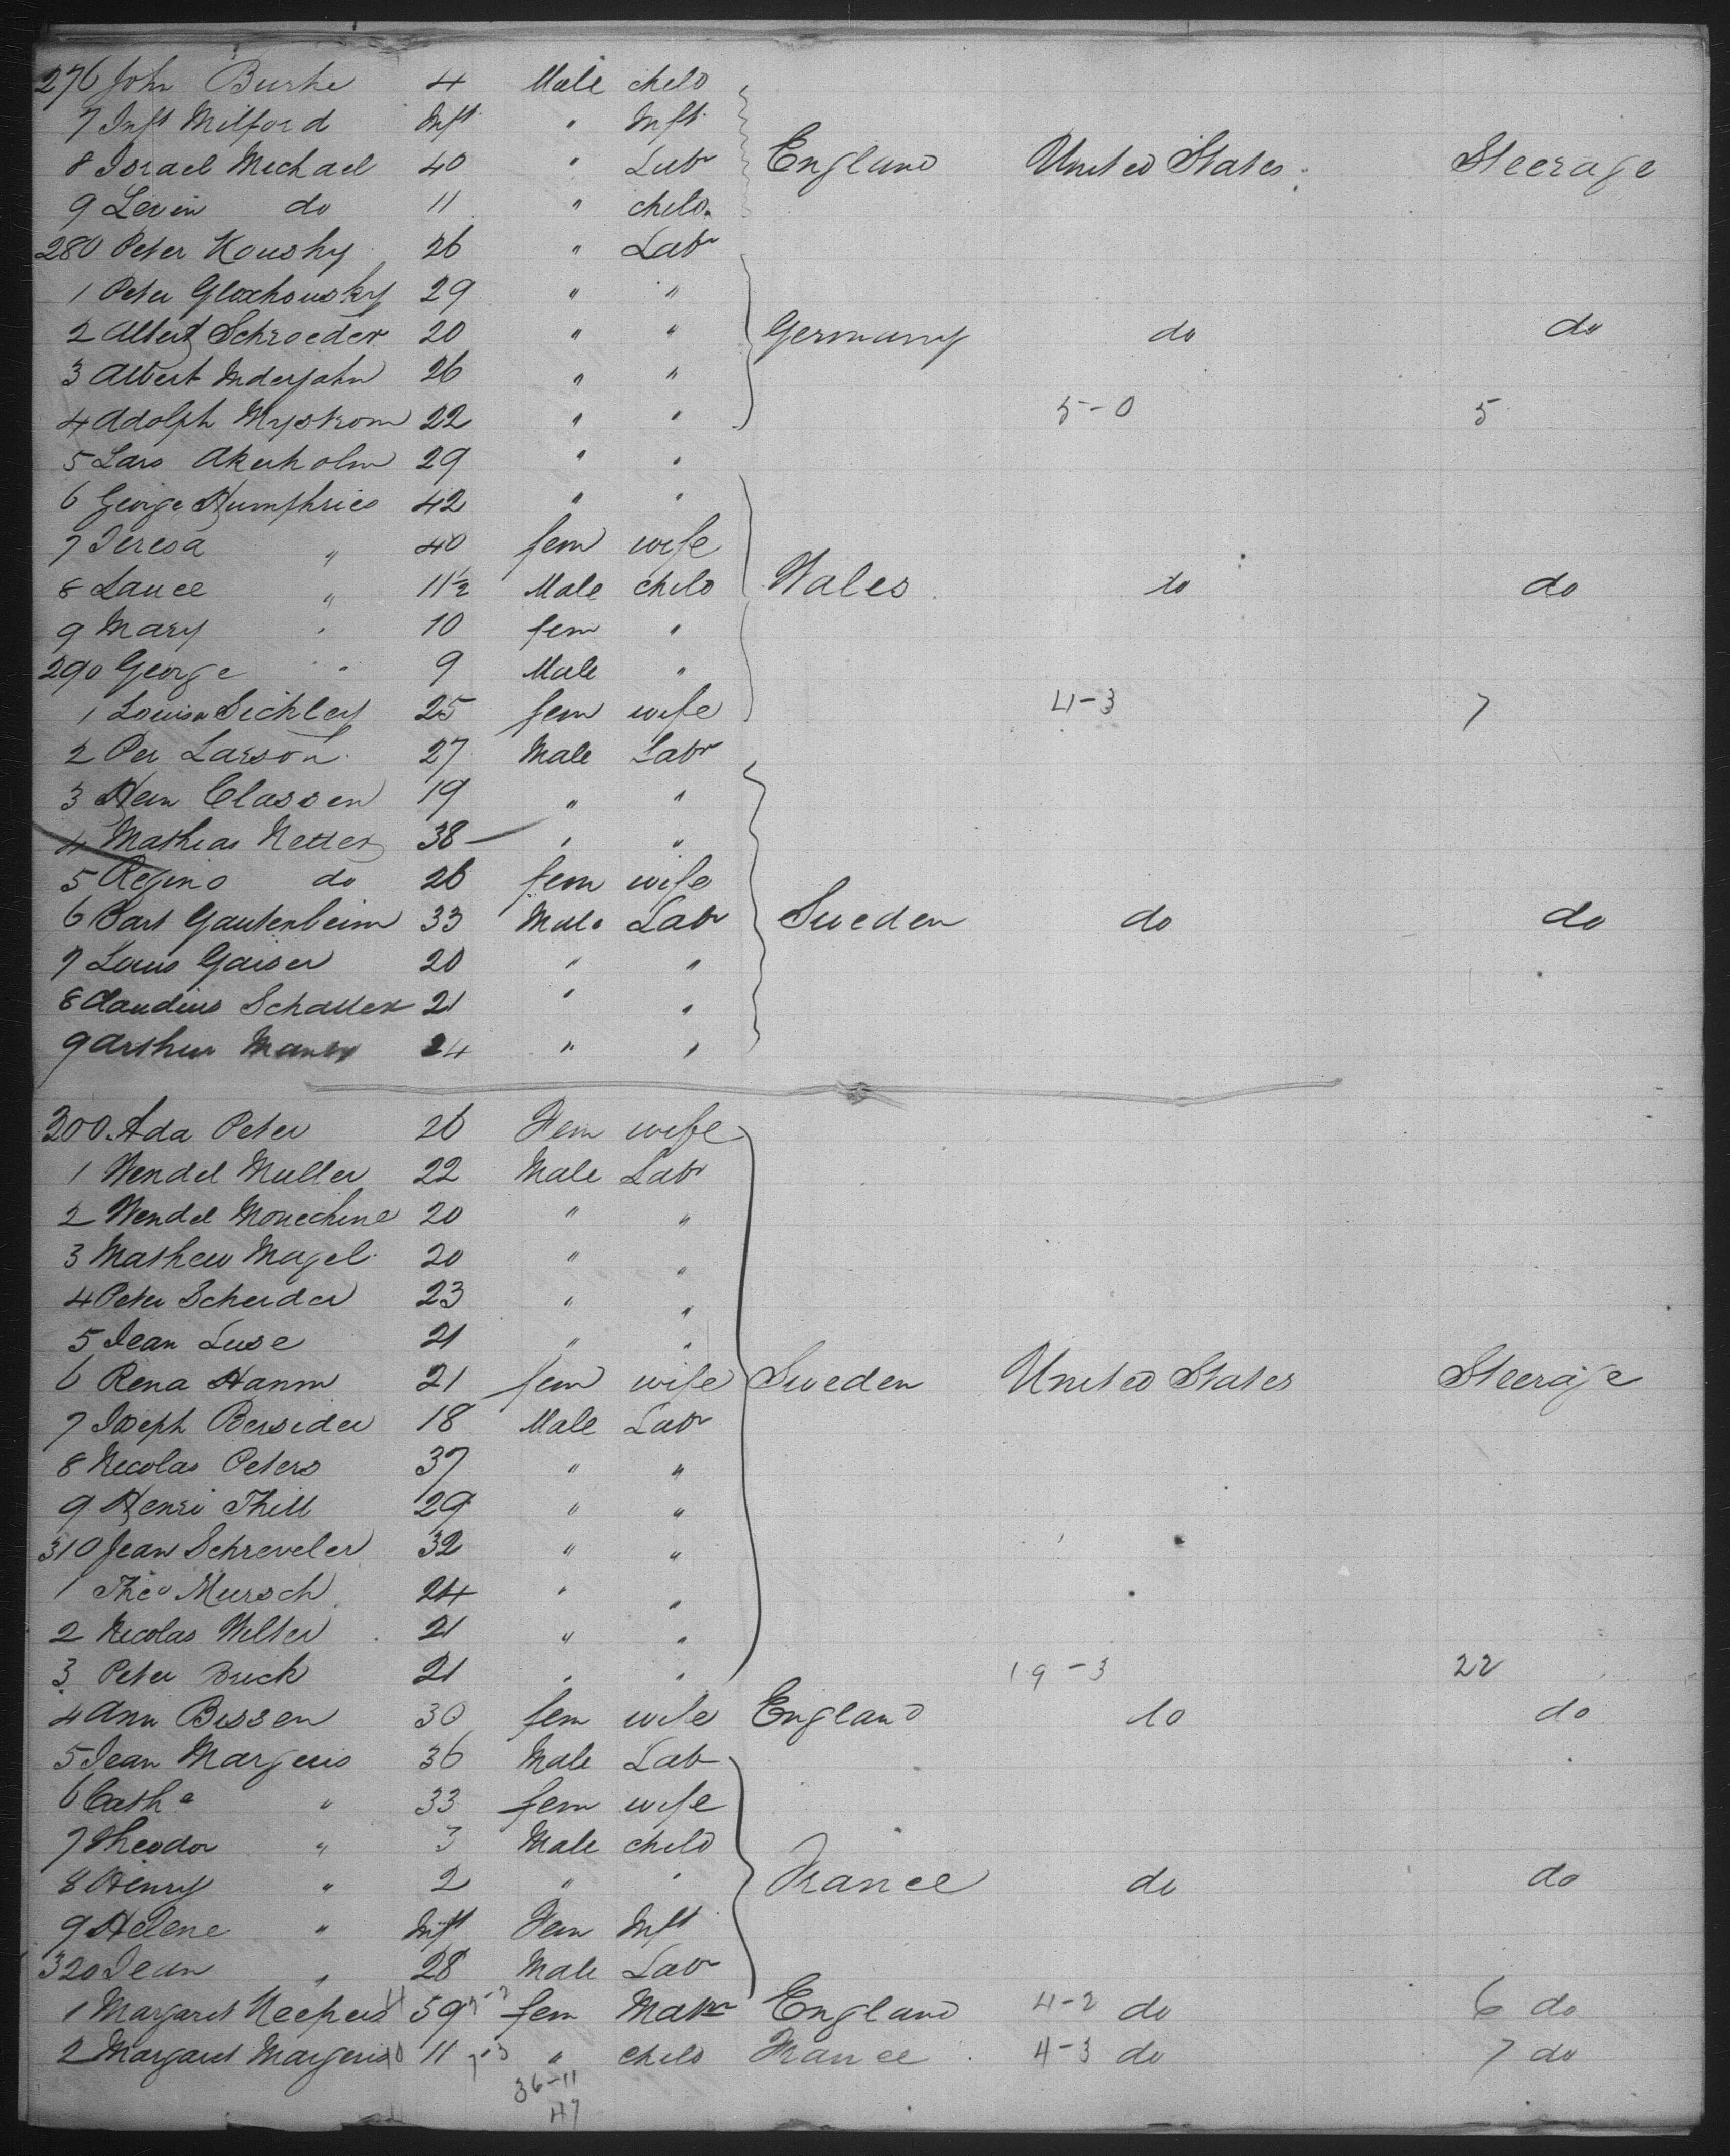 276 John Burke 4 Male child
7 Inft Milford Inft " Inft
8 Israel Michael 40 " Labr England United States Steerage
9 Levin do 11 " child
280 Peter Kousky 26 " Labr
1 Peter Gloxhousky 29 " "
2 Albert Schroeder 20 " " Germany do do
3 Albert Inderjahn 26 " "
4 Adolph Nystrom 22 " " 5-0 5
5 Lars Akerholm 29 " "
6 George Humphries 42 " "
7 Teresa " 40 fem wife
8 Lance " 11½ Male child Wales do do
9 Mary " 10 fem "
290 George " 9 Male "
1 Louisa Sichley 25 fem wife 4-3 7
2 Per Larson 27 Male Labr
3 Hein Classen 19 " "
4 Mathias Netter 38 " "
5 Regino do 26 fem wife
6 Bart Gautenbeim 33 Male Labr Sweden do do
7 Louis Gaiser 20 " "
8 Claudius Schaller 21 " "
9 Arthur 24 " "
300 Ada Peter 26 Fem wife
1 Wendel Muller 22 Male Labr
2 Wendel Monechine 20 " "
3 Mathew Magel 20 " "
4 Peter Scheider 23 " "
5 Jean Luse 21 " "
6 Rena Hamm 21 fem wife Sweden United States Steerage
7 Joseph Bersider 18 Male Labr
8 Nicolas Peters 37 " "
9 Henri Thill 29 " "
310 Jean Schreveler 32 " "
1 Theo Mersch 24 " "
2 Nicolas Welter 21 " "
3 Peter Brick 21 " " 19-3 22
4 Ann Bissen 30 fem wife England do do
5 Jean Margeris 36 Male Lab
6 Cathe " 33 fem wife
7 Theodor " 3 Male child
8 Henry " 2 " " France do do
9 Helene " Inft Fem Inft
320 Jean " 28 Male Labr
1 Margaret Keepers 59 fem Matr England 4-2 do 6 do
2 Margaret Margeris 11 " child France 4-3 do 7 do
36-11
47